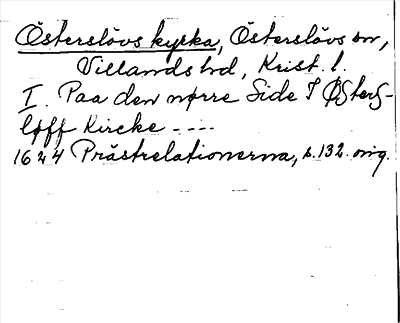 Österslövs kyrka, Österslövs sn,
Villands hd, Krist. l.
I. Paa den nørre Side I Østers-
løff Kircke ----
1624 Prästrelationerna, s. 132. orig.